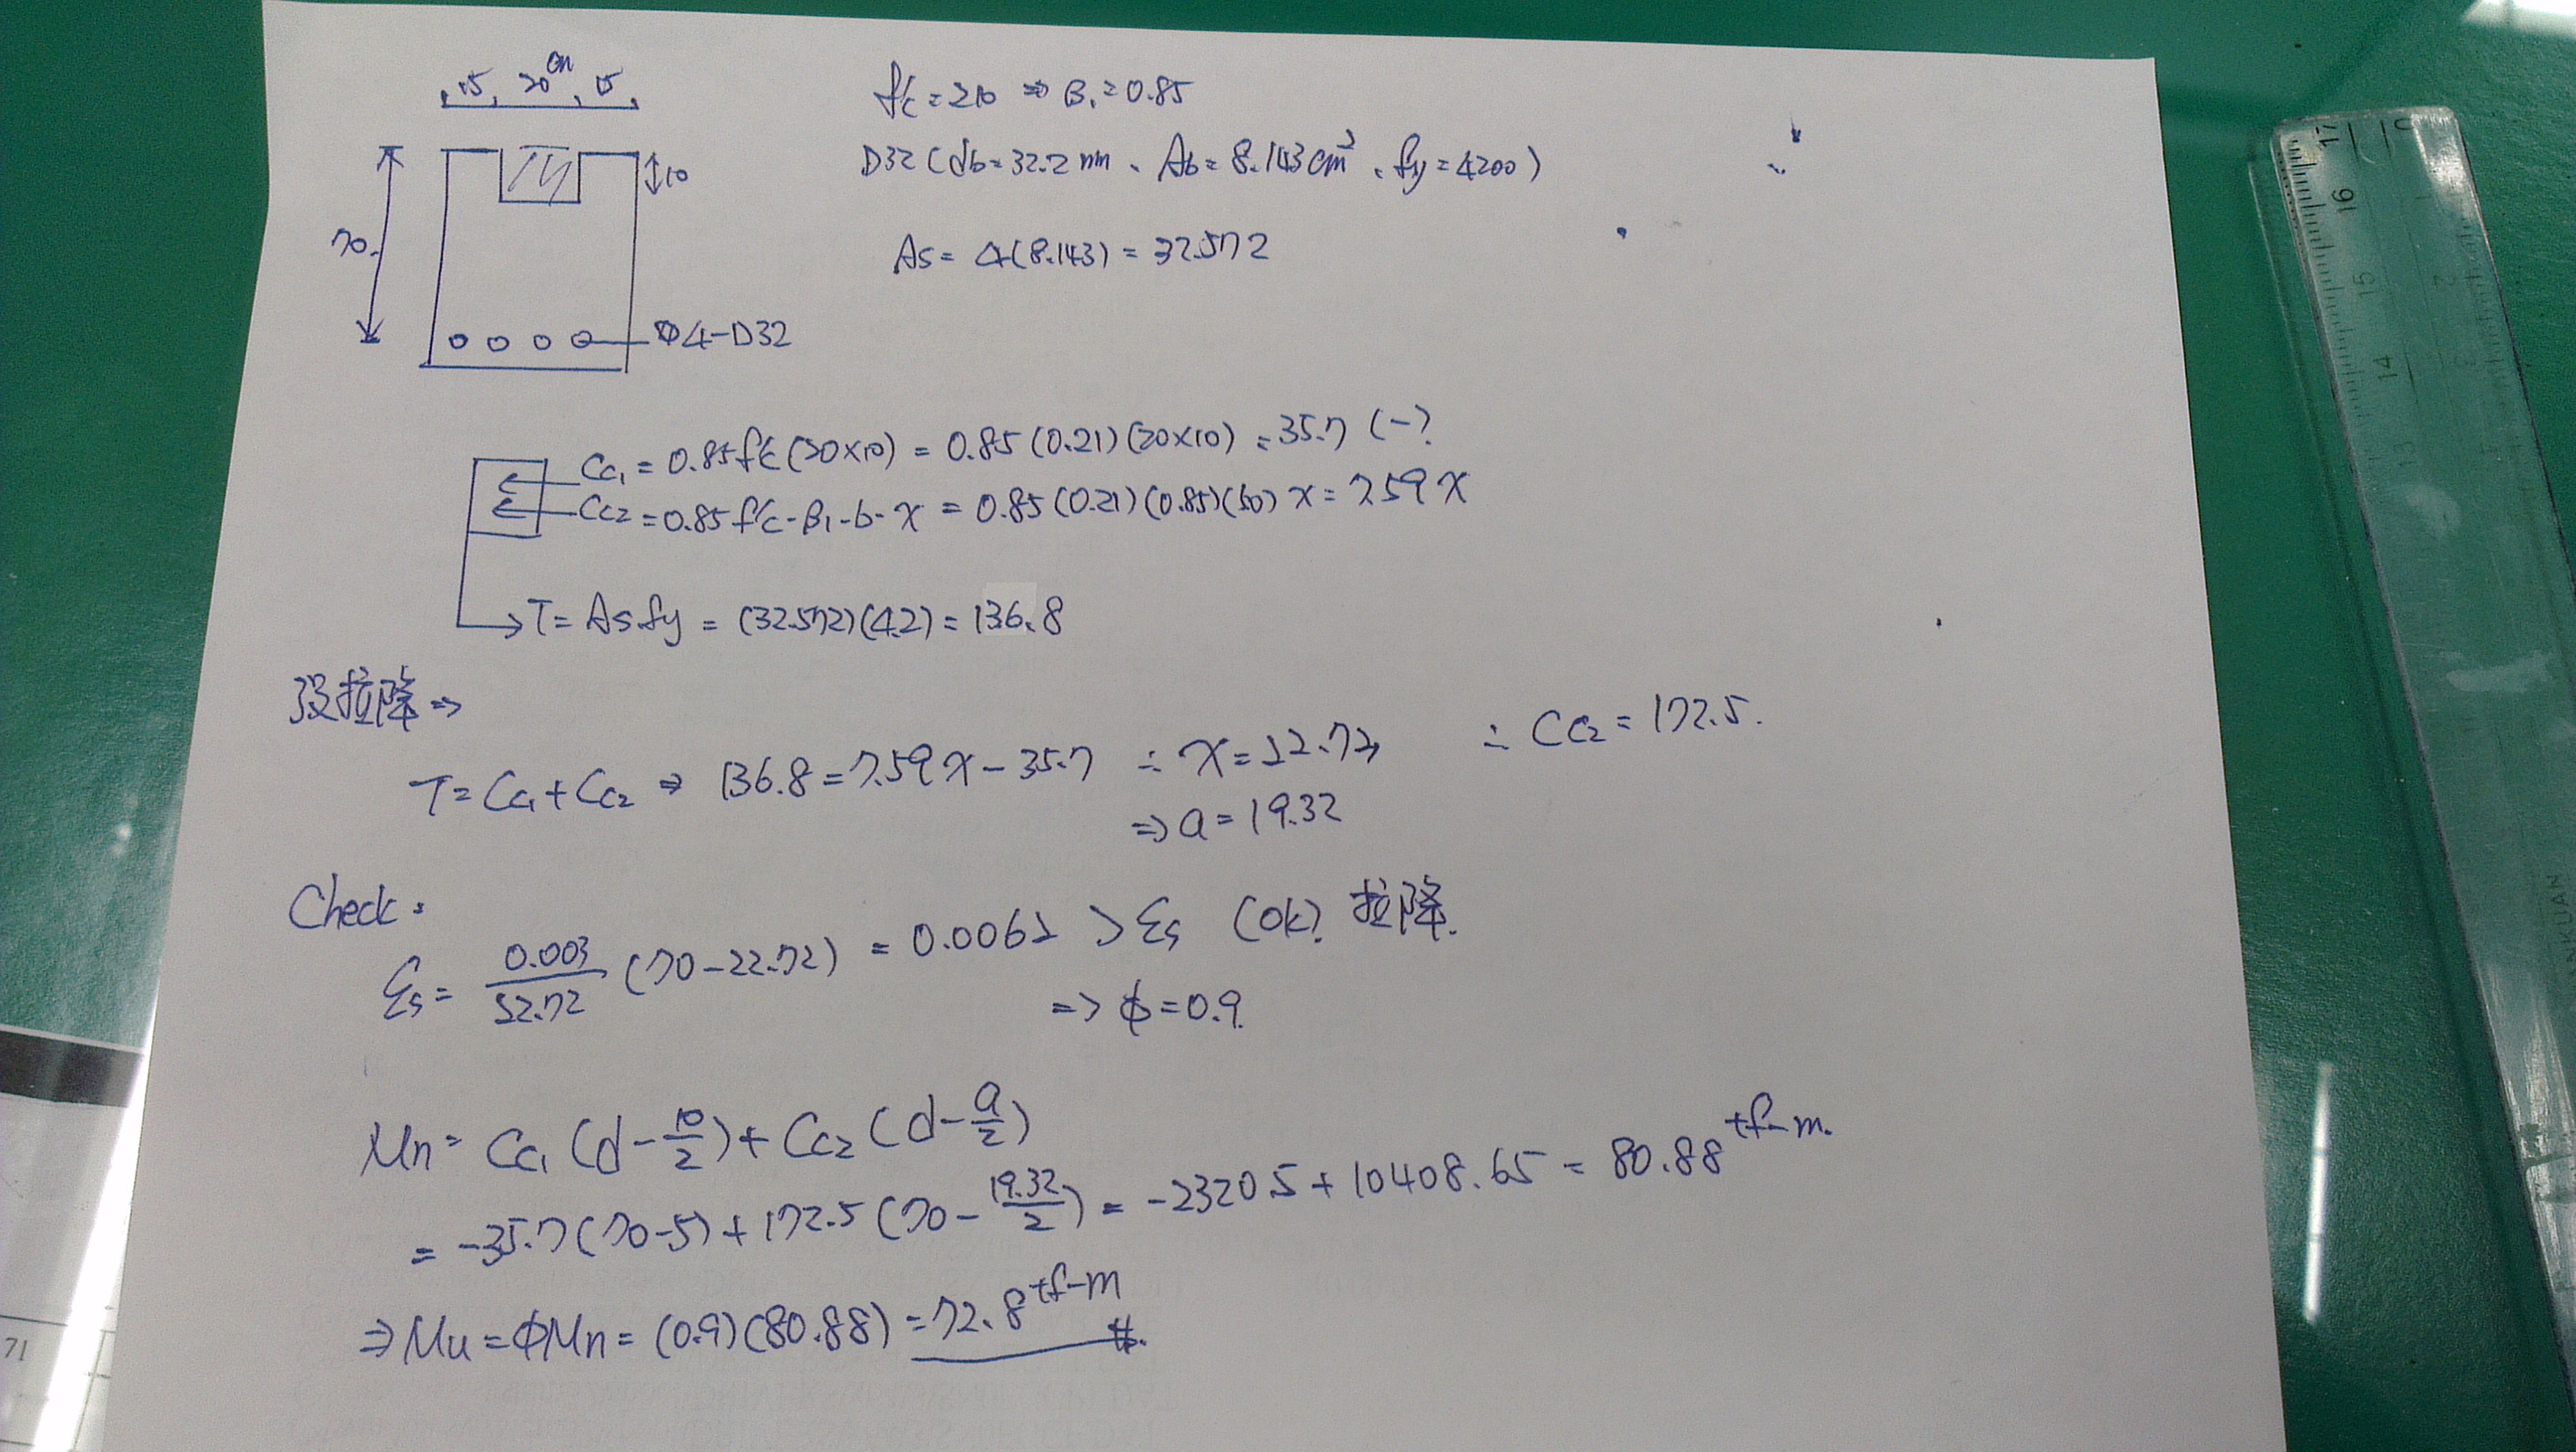 15, 20cm, 15
f'c = 210 ⇒ β₁ = 0.85
D32 (db = 32.2 mm、Ab = 8.143 cm²、fy = 4200)
10
70
As = 4(8.143) = 32.572
4-D32
Cc₁ = 0.85f'c (20×10) = 0.85 (0.21) (20×10) = 35.7 (-)
Cc₂ = 0.85 f'c·β₁·b·x = 0.85 (0.21) (0.85) (50) x = 7.59 x
T = As fy = (32.572)(4.2) = 136.8
設拉降⇒
T = Cc₁ + Cc₂ ⇒ 136.8 = 7.59 x - 35.7 ∴ x = 22.72 ∴ Cc₂ = 172.5.
⇒ a = 19.32
Check:
εs = 0.003/22.72 (70-22.72) = 0.0062 > εs (ok) 拉降.
⇒ φ = 0.9
Mn = Cc₁ (d - 10/2) + Cc₂ (d - a/2)
= -35.7 (70-5) + 172.5 (70 - 19.32/2) = -2320.5 + 10408.65 = 80.88 tf-m.
⇒ Mu = φMn = (0.9)(80.88) = 72.8 tf-m #
17
16
15
14
13
0
2
3
71